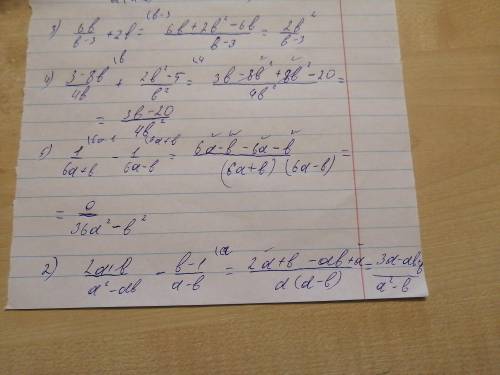 3) 6b/(b-3) + 2b \(b-3 = (6b+2b²-6b)/(b-3) = 2b²/(b-3)
4) (3-8b)/4b \b + (2b²-5)/b² \4 = (3b-8b²+8b²-20)/4b² =
= (3b-20)/4b²
5) 1/(6a+b) \6a-b - 1/(6a-b) \6a+b = (6a-b-6a-b)/((6a+b)(6a-b)) =
= 0/(36a²-b²)
2) /(a²-ab) - (b-1)/(a-b) \a = (2a+b-ab+a)/(a(a-b)) =